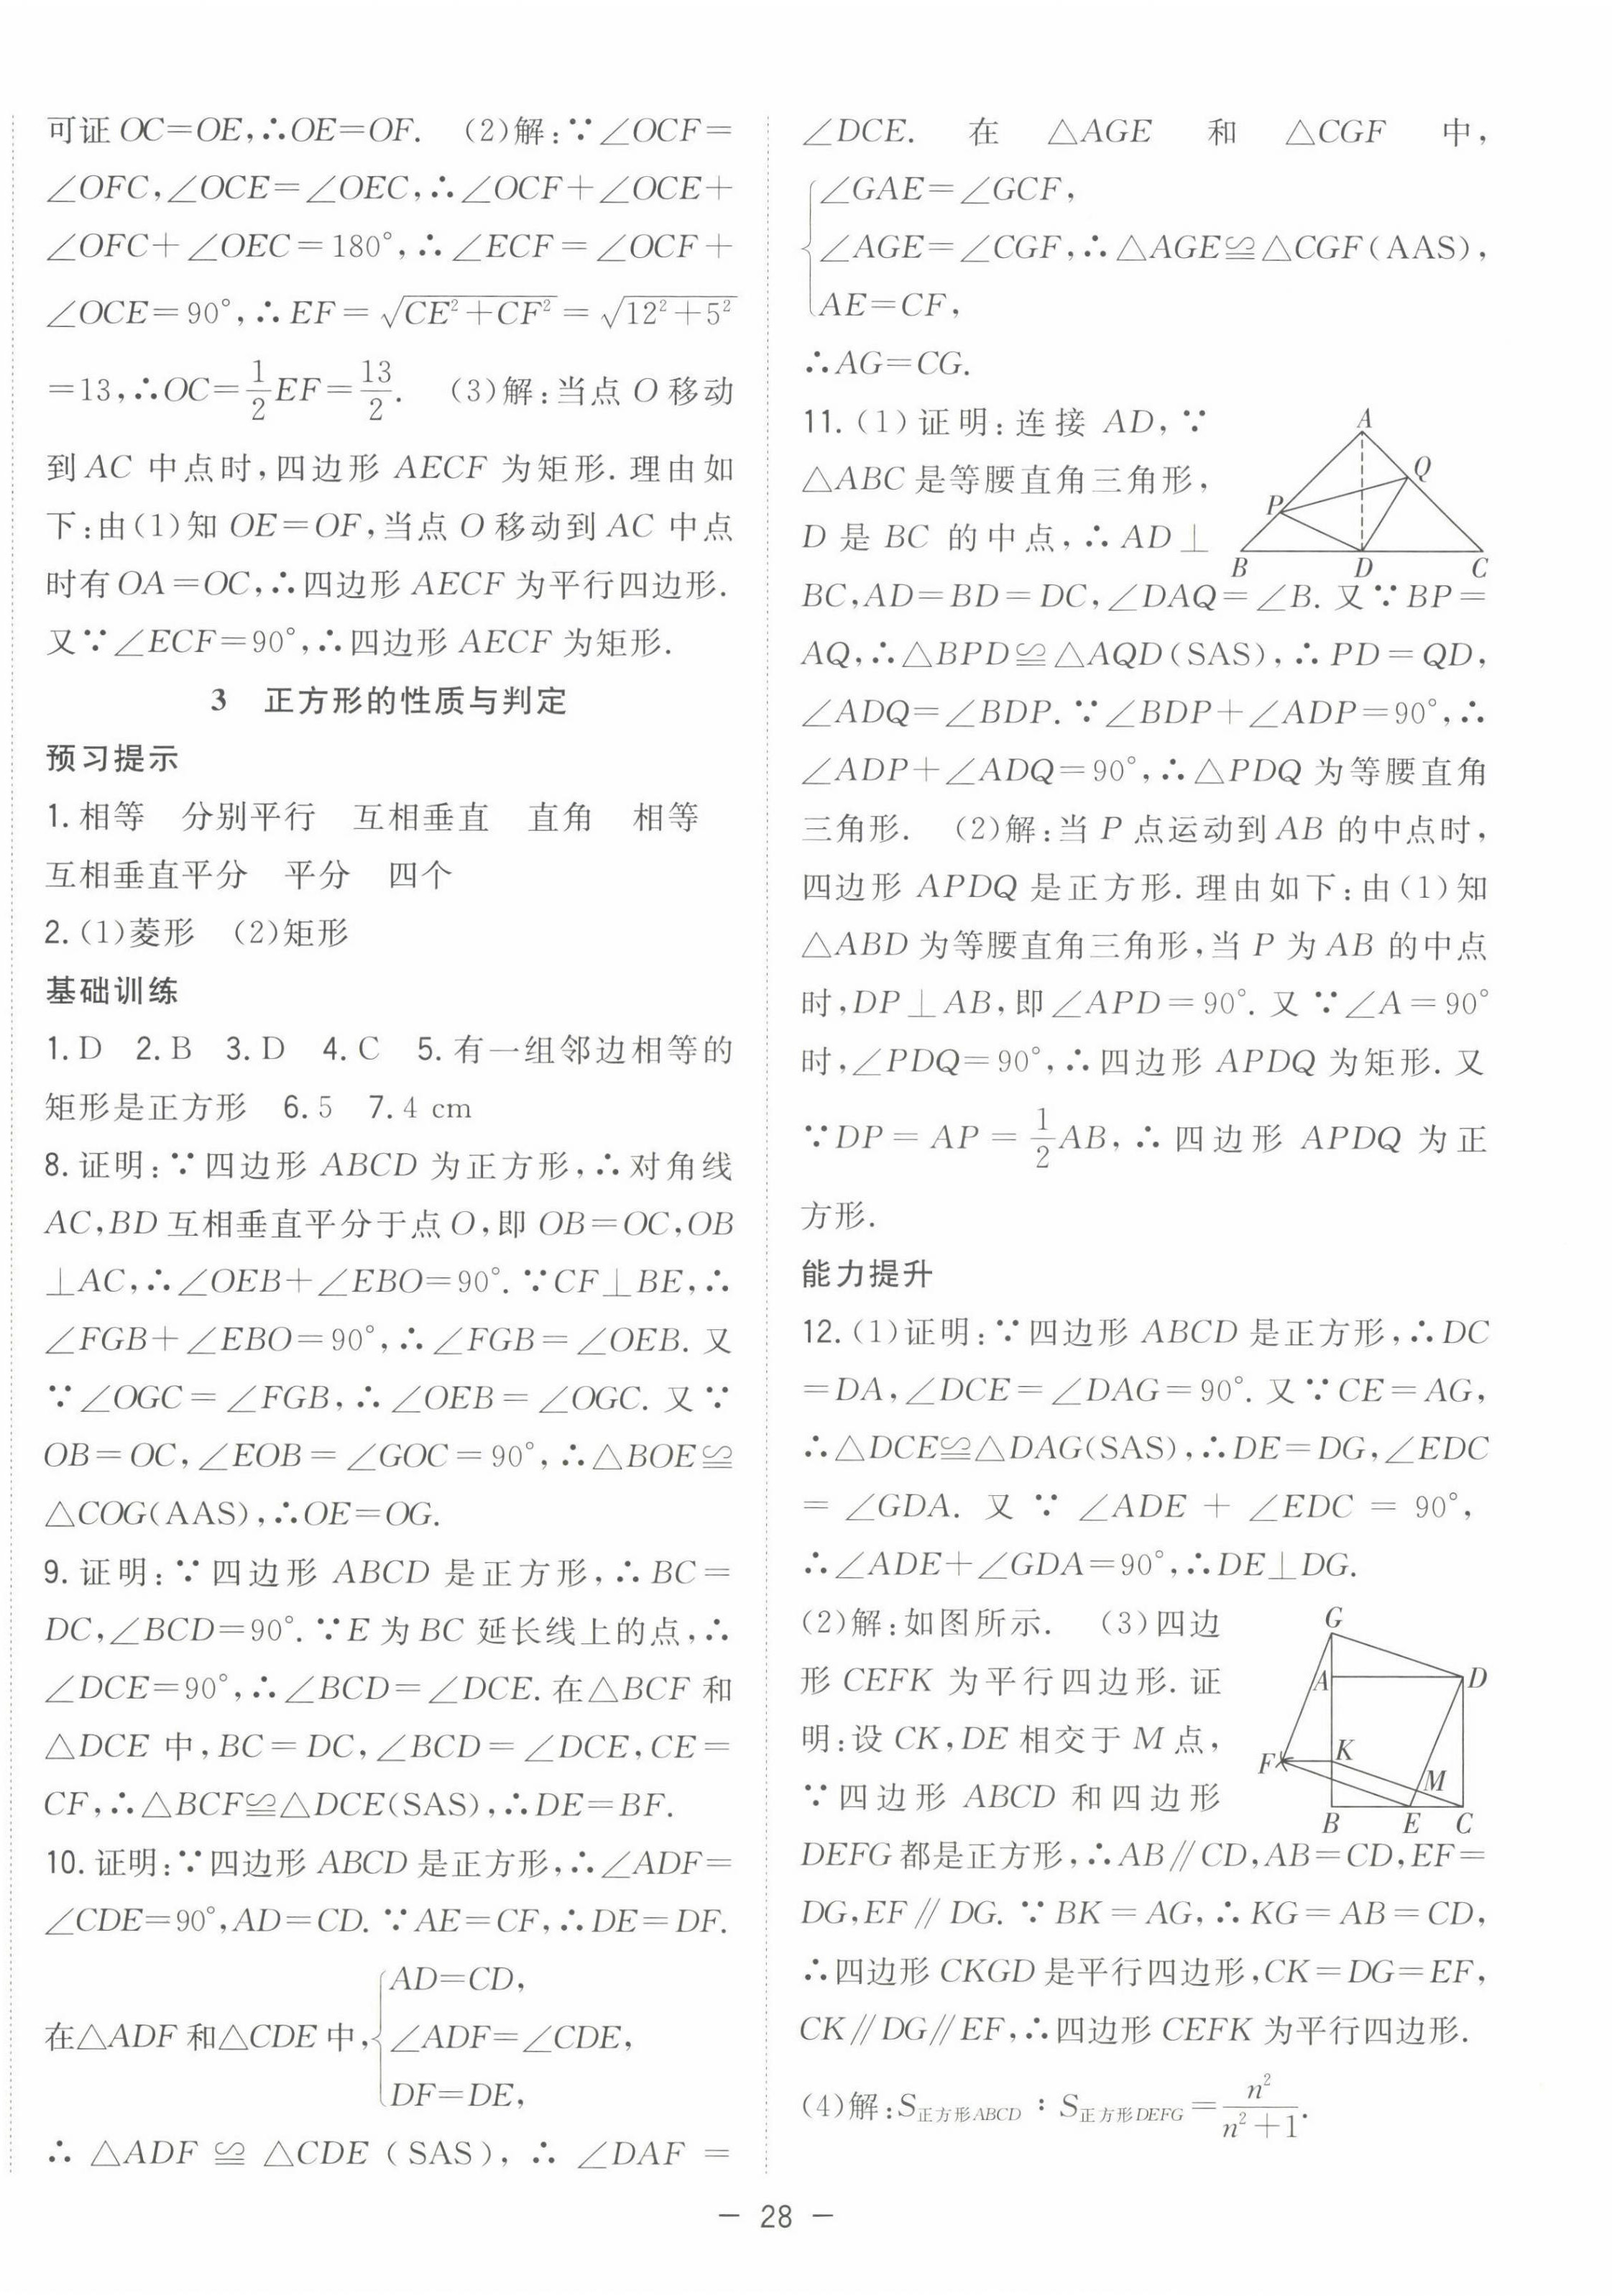 可证 OC=OE,∴OE=OF. (2)解:∵∠OCF=
∠OFC,∠OCE=∠OEC,∴∠OCF+∠OCE+
∠OFC+∠OEC=180°,∴∠ECF=∠OCF+
∠OCE=90°,∴EF=√(CE²+CF²)=√(12²+5²)
=13,∴OC=1/2EF=13/2. (3)解:当点 O 移动
到 AC 中点时,四边形 AECF 为矩形.理由如
下:由(1)知 OE=OF,当点 O 移动到 AC 中点
时有 OA=OC,∴四边形 AECF 为平行四边形.
又∵∠ECF=90°,∴四边形 AECF 为矩形.
3 正方形的性质与判定
预习提示
1.相等 分别平行 互相垂直 直角 相等
互相垂直平分 平分 四个
2.(1)菱形 (2)矩形
基础训练
1.D 2.B 3.D 4.C 5.有一组邻边相等的
矩形是正方形 6.5 7.4 cm
8.证明:∵四边形 ABCD 为正方形,∴对角线
AC,BD 互相垂直平分于点 O,即 OB=OC,OB
⊥AC,∴∠OEB+∠EBO=90°.∵CF⊥BE,∴
∠FGB+∠EBO=90°,∴∠FGB=∠OEB.又
∵∠OGC=∠FGB,∴∠OEB=∠OGC.又∵
OB=OC,∠EOB=∠GOC=90°,∴△BOE≌
△COG(AAS),∴OE=OG.
9.证明:∵四边形 ABCD 是正方形,∴BC=
DC,∠BCD=90°.∵E 为 BC 延长线上的点,∴
∠DCE=90°,∴∠BCD=∠DCE.在△BCF 和
△DCE 中,BC=DC,∠BCD=∠DCE,CE=
CF,∴△BCF≌△DCE(SAS),∴DE=BF.
10.证明:∵四边形 ABCD 是正方形,∴∠ADF=
∠CDE=90°,AD=CD.∵AE=CF,∴DE=DF.
AD=CD,
在△ADF 和△CDE 中,{∠ADF=∠CDE,
DF=DE,
∴△ADF≌△CDE(SAS),∴∠DAF=
∠DCE. 在 △AGE 和 △CGF 中,
∠GAE=∠GCF,
{∠AGE=∠CGF,∴△AGE≌△CGF(AAS),
AE=CF,
∴AG=CG.
11.(1)证明:连接 AD,∵
△ABC 是等腰直角三角形,
D 是 BC 的中点,∴AD⊥
A
Q
P
B D C
BC,AD=BD=DC,∠DAQ=∠B.又∵BP=
AQ,∴△BPD≌△AQD(SAS),∴PD=QD,
∠ADQ=∠BDP.∵∠BDP+∠ADP=90°,∴
∠ADP+∠ADQ=90°,∴△PDQ 为等腰直角
三角形. (2)解:当 P 点运动到 AB 的中点时,
四边形 APDQ 是正方形.理由如下:由(1)知
△ABD 为等腰直角三角形,当 P 为 AB 的中点
时,DP⊥AB,即∠APD=90°.又∵∠A=90°
时,∠PDQ=90°,∴四边形 APDQ 为矩形.又
∵DP=AP=1/2AB,∴四边形 APDQ 为正
方形.
能力提升
12.(1)证明:∵四边形 ABCD 是正方形,∴DC
=DA,∠DCE=∠DAG=90°.又∵CE=AG,
∴△DCE≌△DAG(SAS),∴DE=DG,∠EDC
=∠GDA.又∵∠ADE+∠EDC=90°,
∴∠ADE+∠GDA=90°,∴DE⊥DG.
(2)解:如图所示. (3)四边
形 CEFK 为平行四边形.证
明:设 CK,DE 相交于 M 点,
∵四边形 ABCD 和四边形
G
A D
F K
M
B E C
DEFG 都是正方形,∴AB∥CD,AB=CD,EF=
DG,EF∥DG.∵BK=AG,∴KG=AB=CD,
∴四边形 CKGD 是平行四边形,CK=DG=EF,
CK∥DG∥EF,∴四边形 CEFK 为平行四边形.
(4)解:S正方形ABCD:S正方形DEFG=n²/(n²+1).
— 28 —